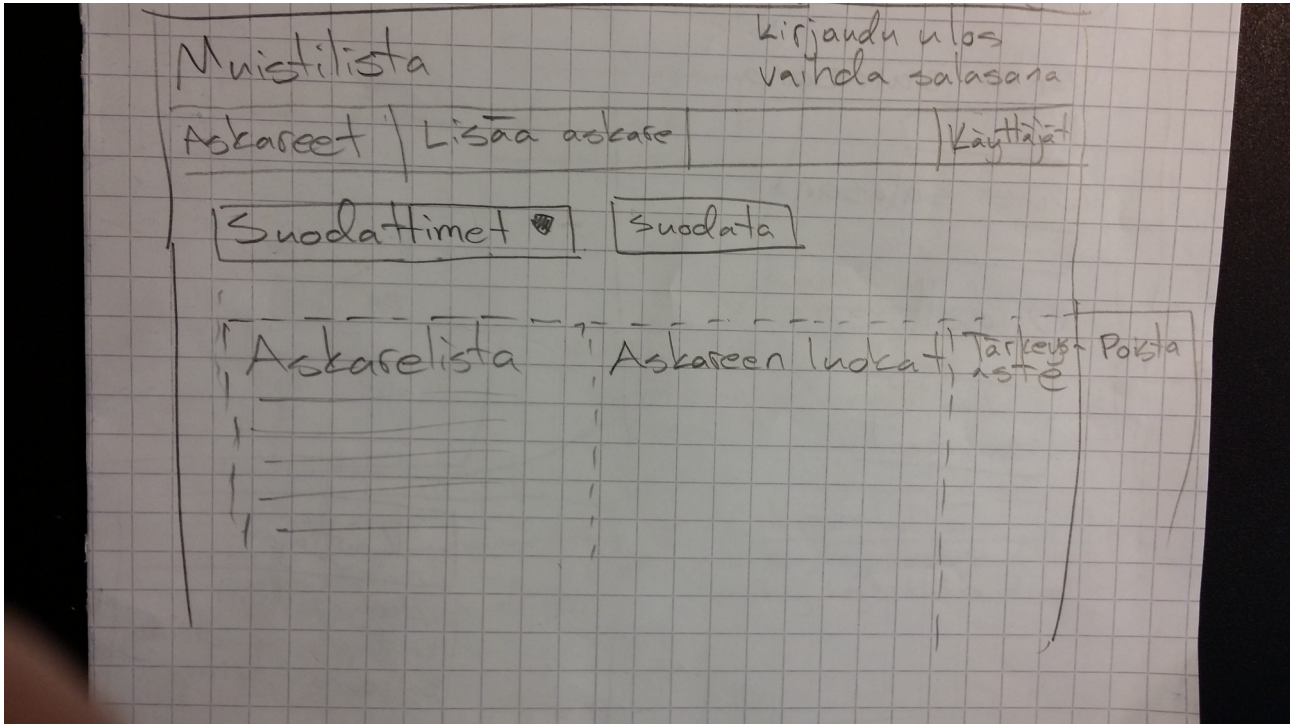 Muistilista
Kirjaudu ulos
vaihda salasana
Askareet
Lisää askare
Käyttäjät
Suodattimet
Suodata
Askarelista
Askareen luokat
Tärkeys-
aste
Poista